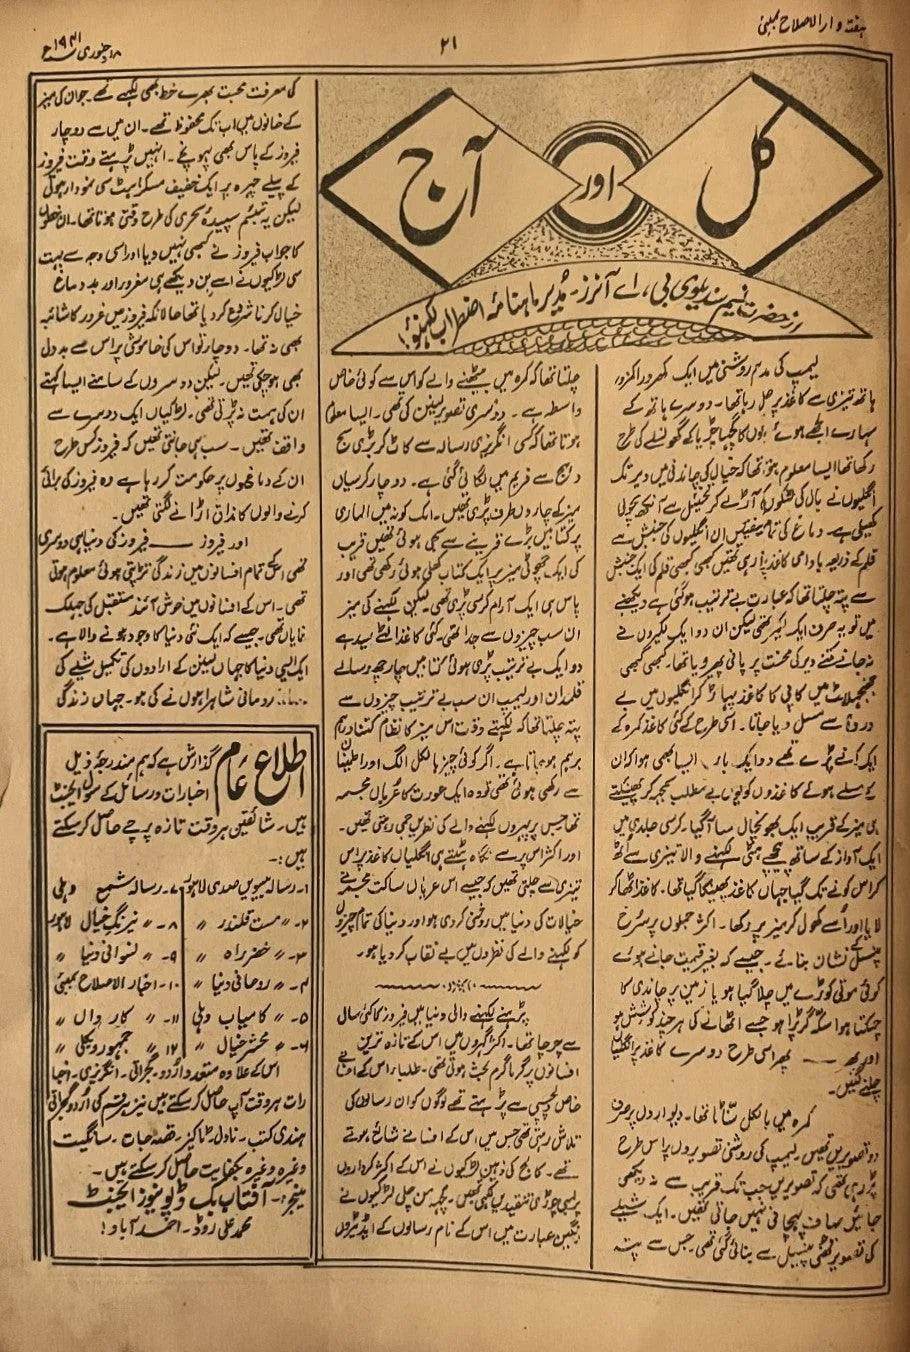 ہفتہ وار الاصلاح بمبئی
۲۱
۱۸ جنوری ۱۹۴۱ء
کل اور آج
از حضرت نسیم سندیلوی بی، اے آنرز۔ مدیر ماہنامہ اضطراب لکھنؤ!
لیمپ کی مدہم روشنی میں ایک کھردرا کمزور
ہاتھ تیزی سے کاغذ پر چل رہا تھا۔ دوسرے ہاتھ کے
سہارے الجھے ہوئے بالوں کا گچھا چڑیا کے گھونسلے کی طرح
رکھا تھا ایسا معلوم ہوتا تھا کہ خیال کی چاندنی میں دیر تک
انگلیوں نے بالوں کی آڑ لے کر تخیل سے آنکھ مچولی
کھیلی ہے۔ دماغ کی تمام کیفیتیں ان انگلیوں کی جنبش سے
قلم کے ذریعہ بادامی کاغذ پر آ رہی تھیں کبھی کبھی قلم کی ایک جنبش
سے پتہ چلتا تھا کہ عبارت بے ترتیب ہو گئی ہے دیکھنے
میں تو یہ صرف ایک لکیر تھی لیکن ان دو ایک لکیروں نے
نہ جانے کتنے دیر کی محنت پر پانی پھیر دیا تھا۔ کبھی کبھی
جھنجھلاہٹ میں کاپی کا کاغذ پھاڑ کر انگلیوں میں بے
دردی سے مسل دیا جاتا۔ اسی طرح کے کئی کاغذ کمرہ کے
ایک کونے پڑے تھے دو ایک بار ایسا بھی ہوا کہ ان
مسلے ہوئے کاغذوں کو یوں ہی بے مطلب سمجھ کر پھینکتے
ہی میز کے قریب ایک بھونچال سا آ گیا۔ کرسی جلدی میں
ایک آواز کے ساتھ پیچھے ہٹی لکھنے والا تیزی سے اٹھ
کر اس کونے تک گیا جہاں کاغذ پھینکا گیا تھا۔ کاغذ اٹھا کر
لایا اور اسے کھول کر میز پر رکھا۔ اکثر جملوں پر سرخ
پنسل کے نشان بنائے۔ جیسے کہ بغیر قیمت جانے ہوئے
کوئی موتی کوڑے میں چلا گیا ہو یا زمین پر چاندی کا
چمکتا ہوا سکہ گر پڑا ہو جسے اٹھانے کی ہر چند کوشش ہو
اور پھر — پھر اسی طرح دوسرے کاغذ پر انگلیاں
چلنے لگیں۔
کمرہ میں بالکل سناٹا تھا۔ دیواروں پر صرف
دو تصویریں تھیں۔ لیمپ کی روشنی تصویروں پر اس طرح
پڑ رہی تھی کہ تصویریں جب تک قریب سے نہ دیکھی
جائیں صاف پہچانی نہیں جاتی تھیں۔ ایک شیلے
کی تصویر تھی پنسل سے بنائی گئی تھی۔ جس سے پتہ
چلتا تھا کہ کمرہ میں بیٹھنے والے کو اس سے کوئی خاص
واسطہ ہے۔ دوسری تصویر لینن کی تھی۔ ایسا معلوم
ہوتا تھا کہ کسی انگریزی رسالہ سے کاٹ کر بڑی سج
دھج سے فریم میں لگائی گئی ہے۔ دو چار کرسیاں
میز کے چاروں طرف پڑی تھیں۔ ایک کونہ میں الماری
پر کتابیں بڑے قرینے سے سجی ہوئی تھیں قریب
کی ایک چھوٹی میز پر ایک کتاب کھلی ہوئی رکھی تھی اور
پاس ہی ایک آرام کرسی پڑی تھی۔ لیکن لکھنے کی میز
ان سب چیزوں سے جدا تھی۔ کئی کاغذ الٹے سیدھے
دو ایک بے ترتیب پڑی ہوئی کتابیں چار چھ رسالے
قلمدان اور لیمپ ان سب بے ترتیب چیزوں سے
پتہ چلتا تھا کہ لکھتے وقت اس میز کا نظام کتنا درہم
برہم ہو جاتا ہے۔ اگر کوئی چیز بالکل الگ اور اطمینان
سے رکھی ہوئی تھی تو وہ ایک عورت کا عریاں مجسمہ
تھا جس پر پہروں لکھنے والے کی نظریں جمی رہتی تھیں۔
اور اکثر اس پر سے نگاہ ہٹتے ہی انگلیاں کاغذ پر اس
تیزی سے چلتی تھیں کہ جیسے اس عریاں ساکت مجسمہ نے
خیالات کی دنیا میں روشنی کر دی ہو اور دنیا کی تمام چیزوں
کو لکھنے والے کی نظروں میں بے نقاب کر دیا ہو۔
پڑھنے لکھنے والی دنیا میں فیروز کا کئی سال
سے چرچا تھا۔ اکثر گھروں میں اس کے تازہ ترین
افسانوں پر گرما گرم بحث ہوتی تھی۔ طلباء اس کے افسانے
خاص دلچسپی سے پڑھتے تھے لوگوں کو ان رسالوں کی
تلاش رہتی تھی جس میں اس کے افسانے شائع ہوتے
تھے۔ کالج کی ذہین لڑکیوں نے اس کے اکثر کرداروں
پر لمبی چوڑی تنقیدیں لکھی تھیں۔ کچھ من چلی لڑکیوں نے
رنگین عبارت میں اس کے نام رسالوں کے ایڈیٹروں
کی معرفت محبت بھرے خط بھی لکھے تھے۔ جو ان کی میز
کے خانوں میں اب تک محفوظ تھے۔ ان میں سے دو چار
فیروز کے پاس بھی پہونچے۔ انہیں پڑھتے وقت فیروز
کے پیلے چہرہ پر ایک خفیف مسکراہٹ سی نمودار ہوتی
لیکن یہ تبسم سپیدۂ سحری کی طرح وقتی ہوتا تھا۔ ان خطوں
کا جواب فیروز نے کبھی نہیں دیا اور اسی وجہ سے بہت
سی لڑکیوں نے اسے بن دیکھے ہی مغرور اور بد دماغ
خیال کرنا شروع کر دیا تھا حالانکہ فیروز میں غرور کا شائبہ
بھی نہ تھا۔ دو چار تو اس کی خاموشی پر اس سے بد دل
بھی ہو چکی تھیں۔ لیکن دوسروں کے سامنے ایسا کہتے
ان کی ہمت نہ پڑتی تھی۔ لڑکیاں ایک دوسرے سے
واقف تھیں۔ سب ہی جانتی تھیں کہ فیروز کس طرح
ان کے دماغوں پر حکومت کر رہا ہے وہ فیروز کی برائی
کرنے والوں کا مذاق اڑانے لگتی تھیں۔
اور فیروز — فیروز کی دنیا ہی دوسری
تھی اسکے تمام افسانوں میں زندگی تڑپتی ہوئی معلوم ہوتی
تھی۔ اس کے افسانوں میں خوش آئند مستقبل کی جھلک
نمایاں تھی۔ جیسے کہ ایک نئی دنیا کا وجود ہونے والا ہے۔
ایک ایسی دنیا کا جہاں لینن کے ارادوں کی تکمیل شیلے کی
..... رومانی شاہراہوں نے کی ہو۔ جہاں زندگی
اطلاع عام گذارش ہے کہ ہم مندرجہ ذیل
اخبارات و رسائل کے سول ایجنٹ
ہیں۔ شائقین ہر وقت تازہ پرچے حاصل کر سکتے
ہیں:۔
۱۔ رسالہ بیسویں صدی لاہور ۷۔ رسالہ شمع دہلی
۲۔ " مست قلندر " ۸۔ " نیرنگ خیال لاہور
۳۔ " خضر راہ " ۹۔ " نسوانی دنیا "
۴۔ " روحانی دنیا " ۱۰۔ اخبار الاصلاح بمبئی
۵۔ " کامیاب دہلی ۱۱۔ " کارواں "
۶۔ " محشر خیال " ۱۲ " جمہور ویکلی "
اس کے علاوہ متعدد اردو۔ گجراتی۔ انگریزی۔ اخبا
رات ہر وقت آپ حاصل کر سکتے ہیں نیز ہر قسم کی اردو گجراتی
ہندی کتب۔ ناول۔ ٹاکیز۔ قصہ جات۔ سانگیت
وغیرہ وغیرہ بکفایت حاصل کر سکتے ہیں۔
منیجر:۔ آفتاب بک ڈپو نیوز ایجنٹ
محمد علی روڈ۔ احمد آباد!